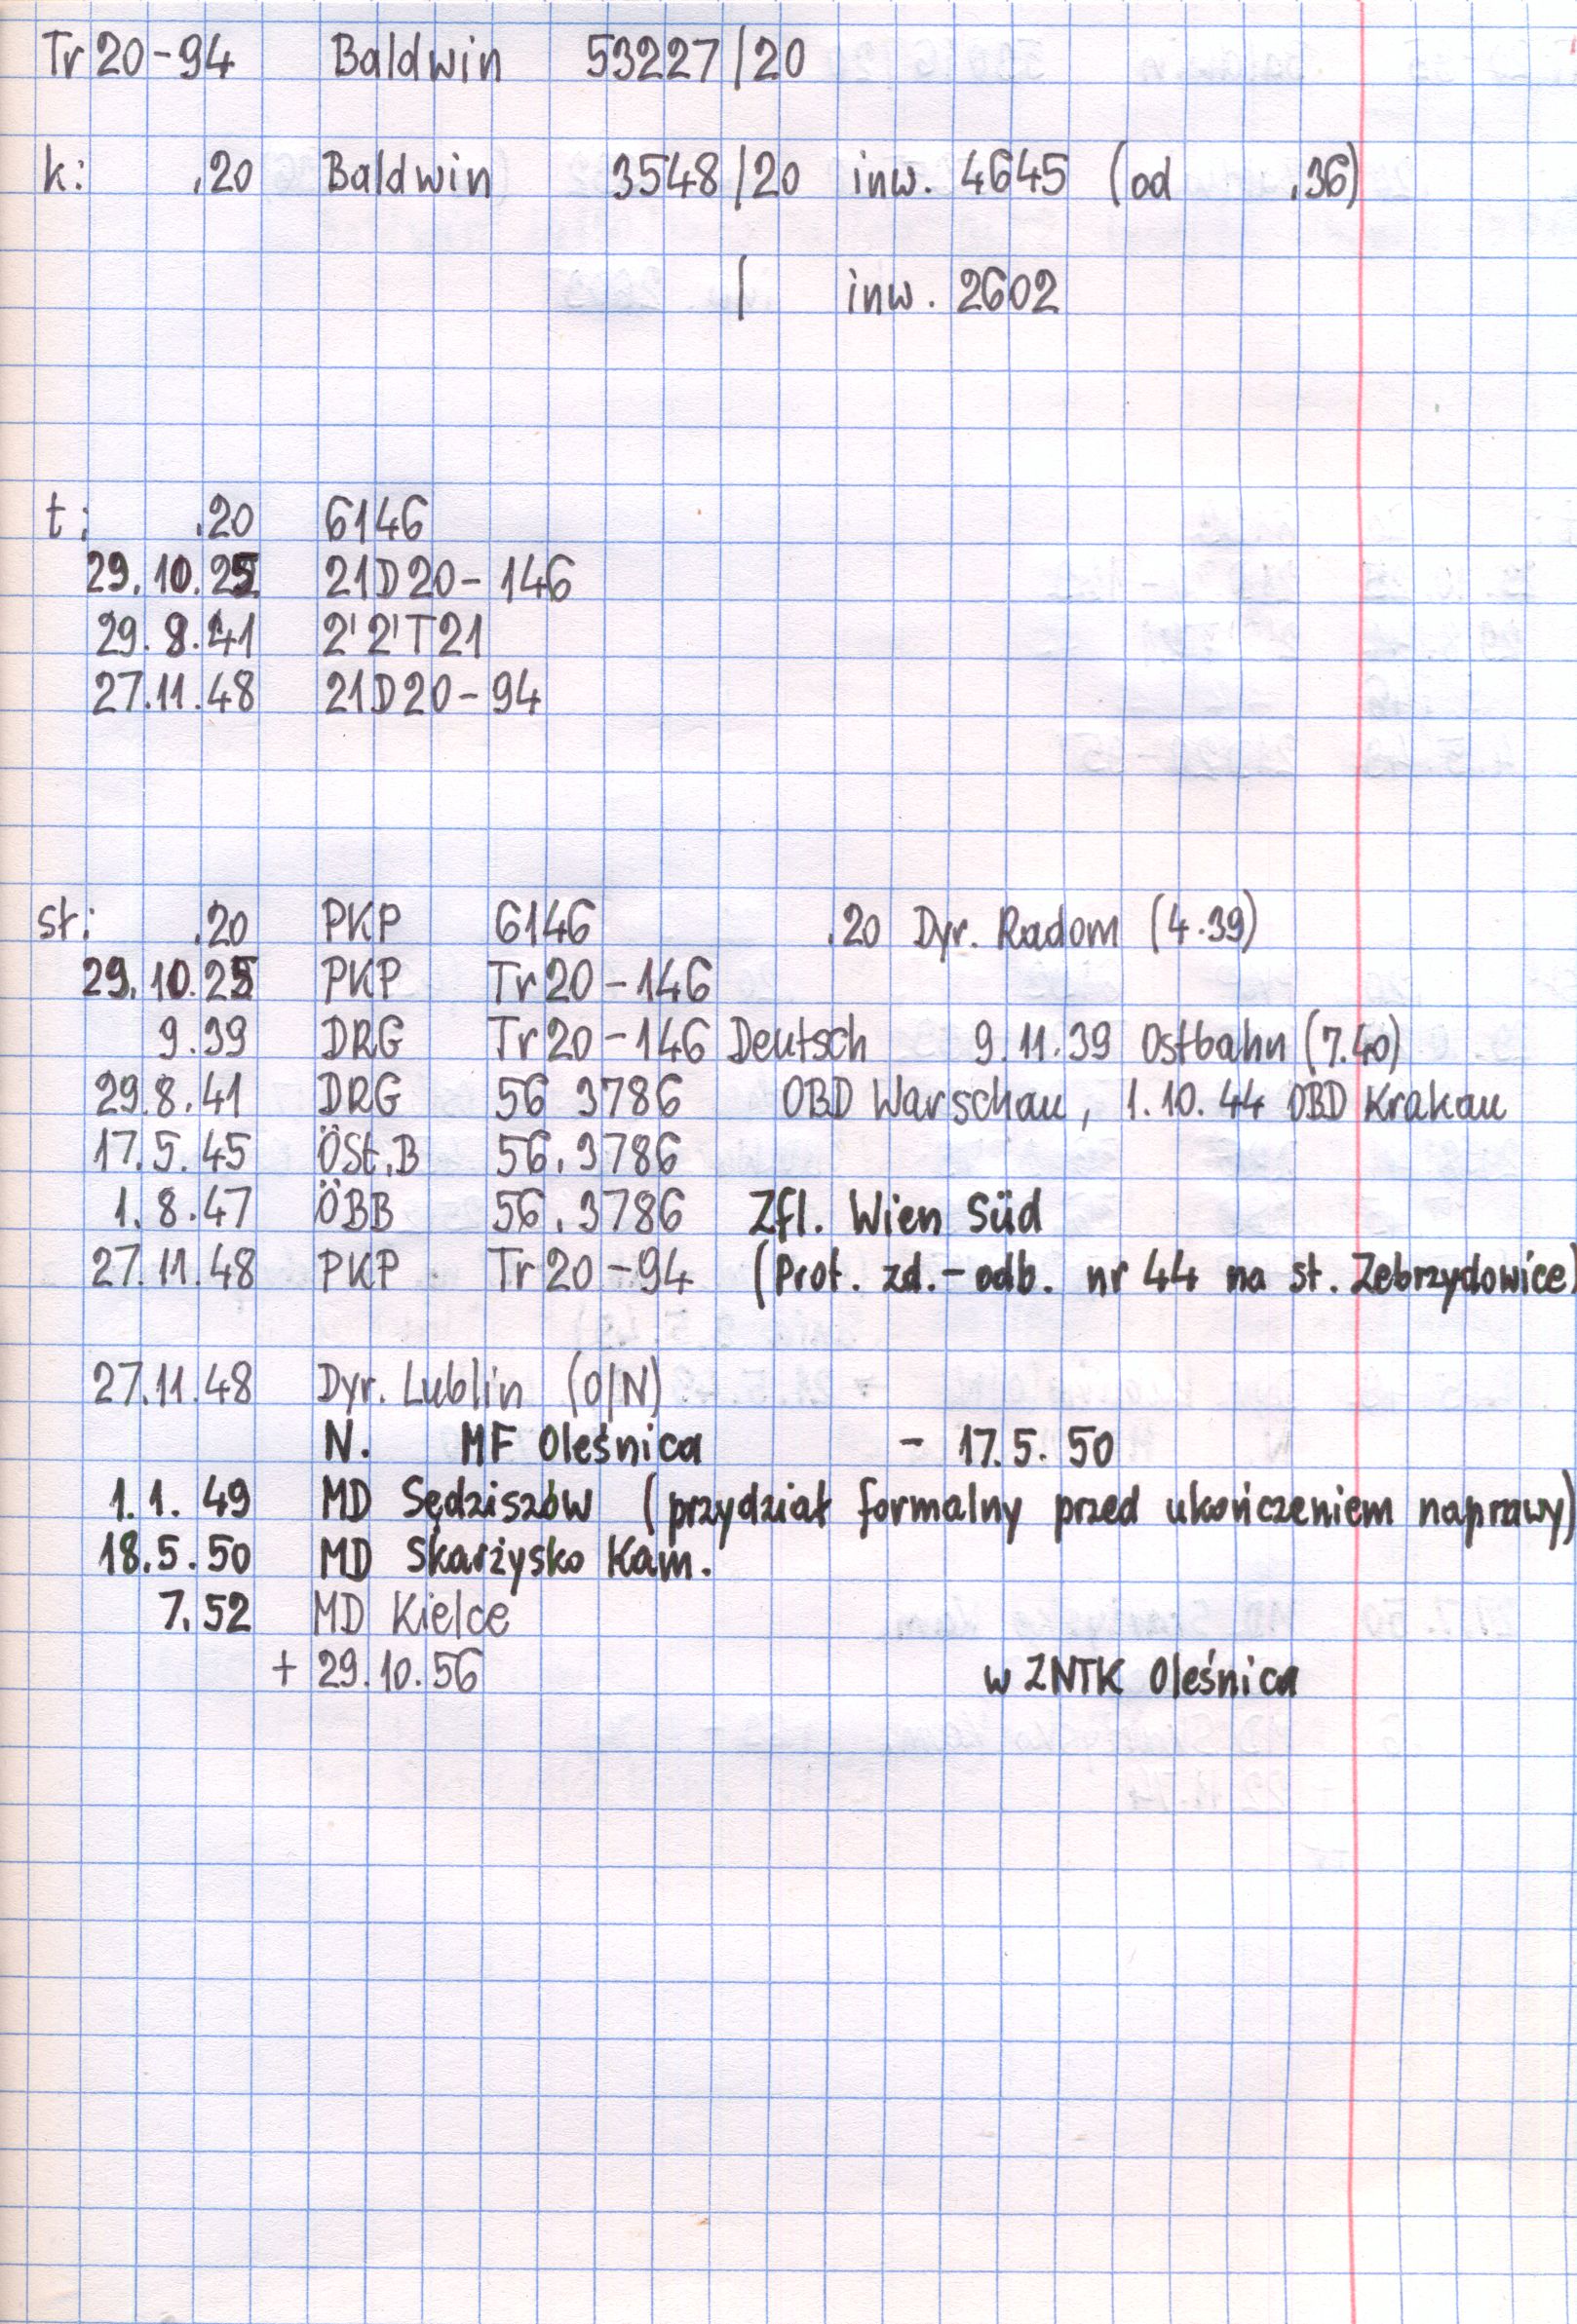 Tr 20-94 Baldwin 53227/20
k: .20 Baldwin 3548/20 inw. 4645 (od .36)
/ inw. 2602
t: .20 6146
29.10.25 21D20-146
29.8.41 2'2'T21
27.11.48 21D20-94
st: .20 PKP 6146 .20 Dyr. Radom (4.39)
29.10.25 PKP Tr 20-146
9.39 DRG Tr 20-146 Deutsch 9.11.39 Ostbahn (7.40)
29.8.41 DRG 56 3786 OBD Warschau, 1.10.44 OBD Krakau
17.5.45 ÖSt.B 56.3786
1.8.47 ÖBB 56.3786 Zfl. Wien Süd
27.11.48 PKP Tr 20-94 (Prot. zd.-odb. nr 44 na st. Zebrzydowice)
27.11.48 Dyr. Lublin (O/N)
N. MF Oleśnica - 17.5.50
1.1.49 MD Sędziszów (przydział formalny przed ukończeniem naprawy)
18.5.50 MD Skarżysko Kam.
7.52 MD Kielce
+ 29.10.56 w ZNTK Oleśnica